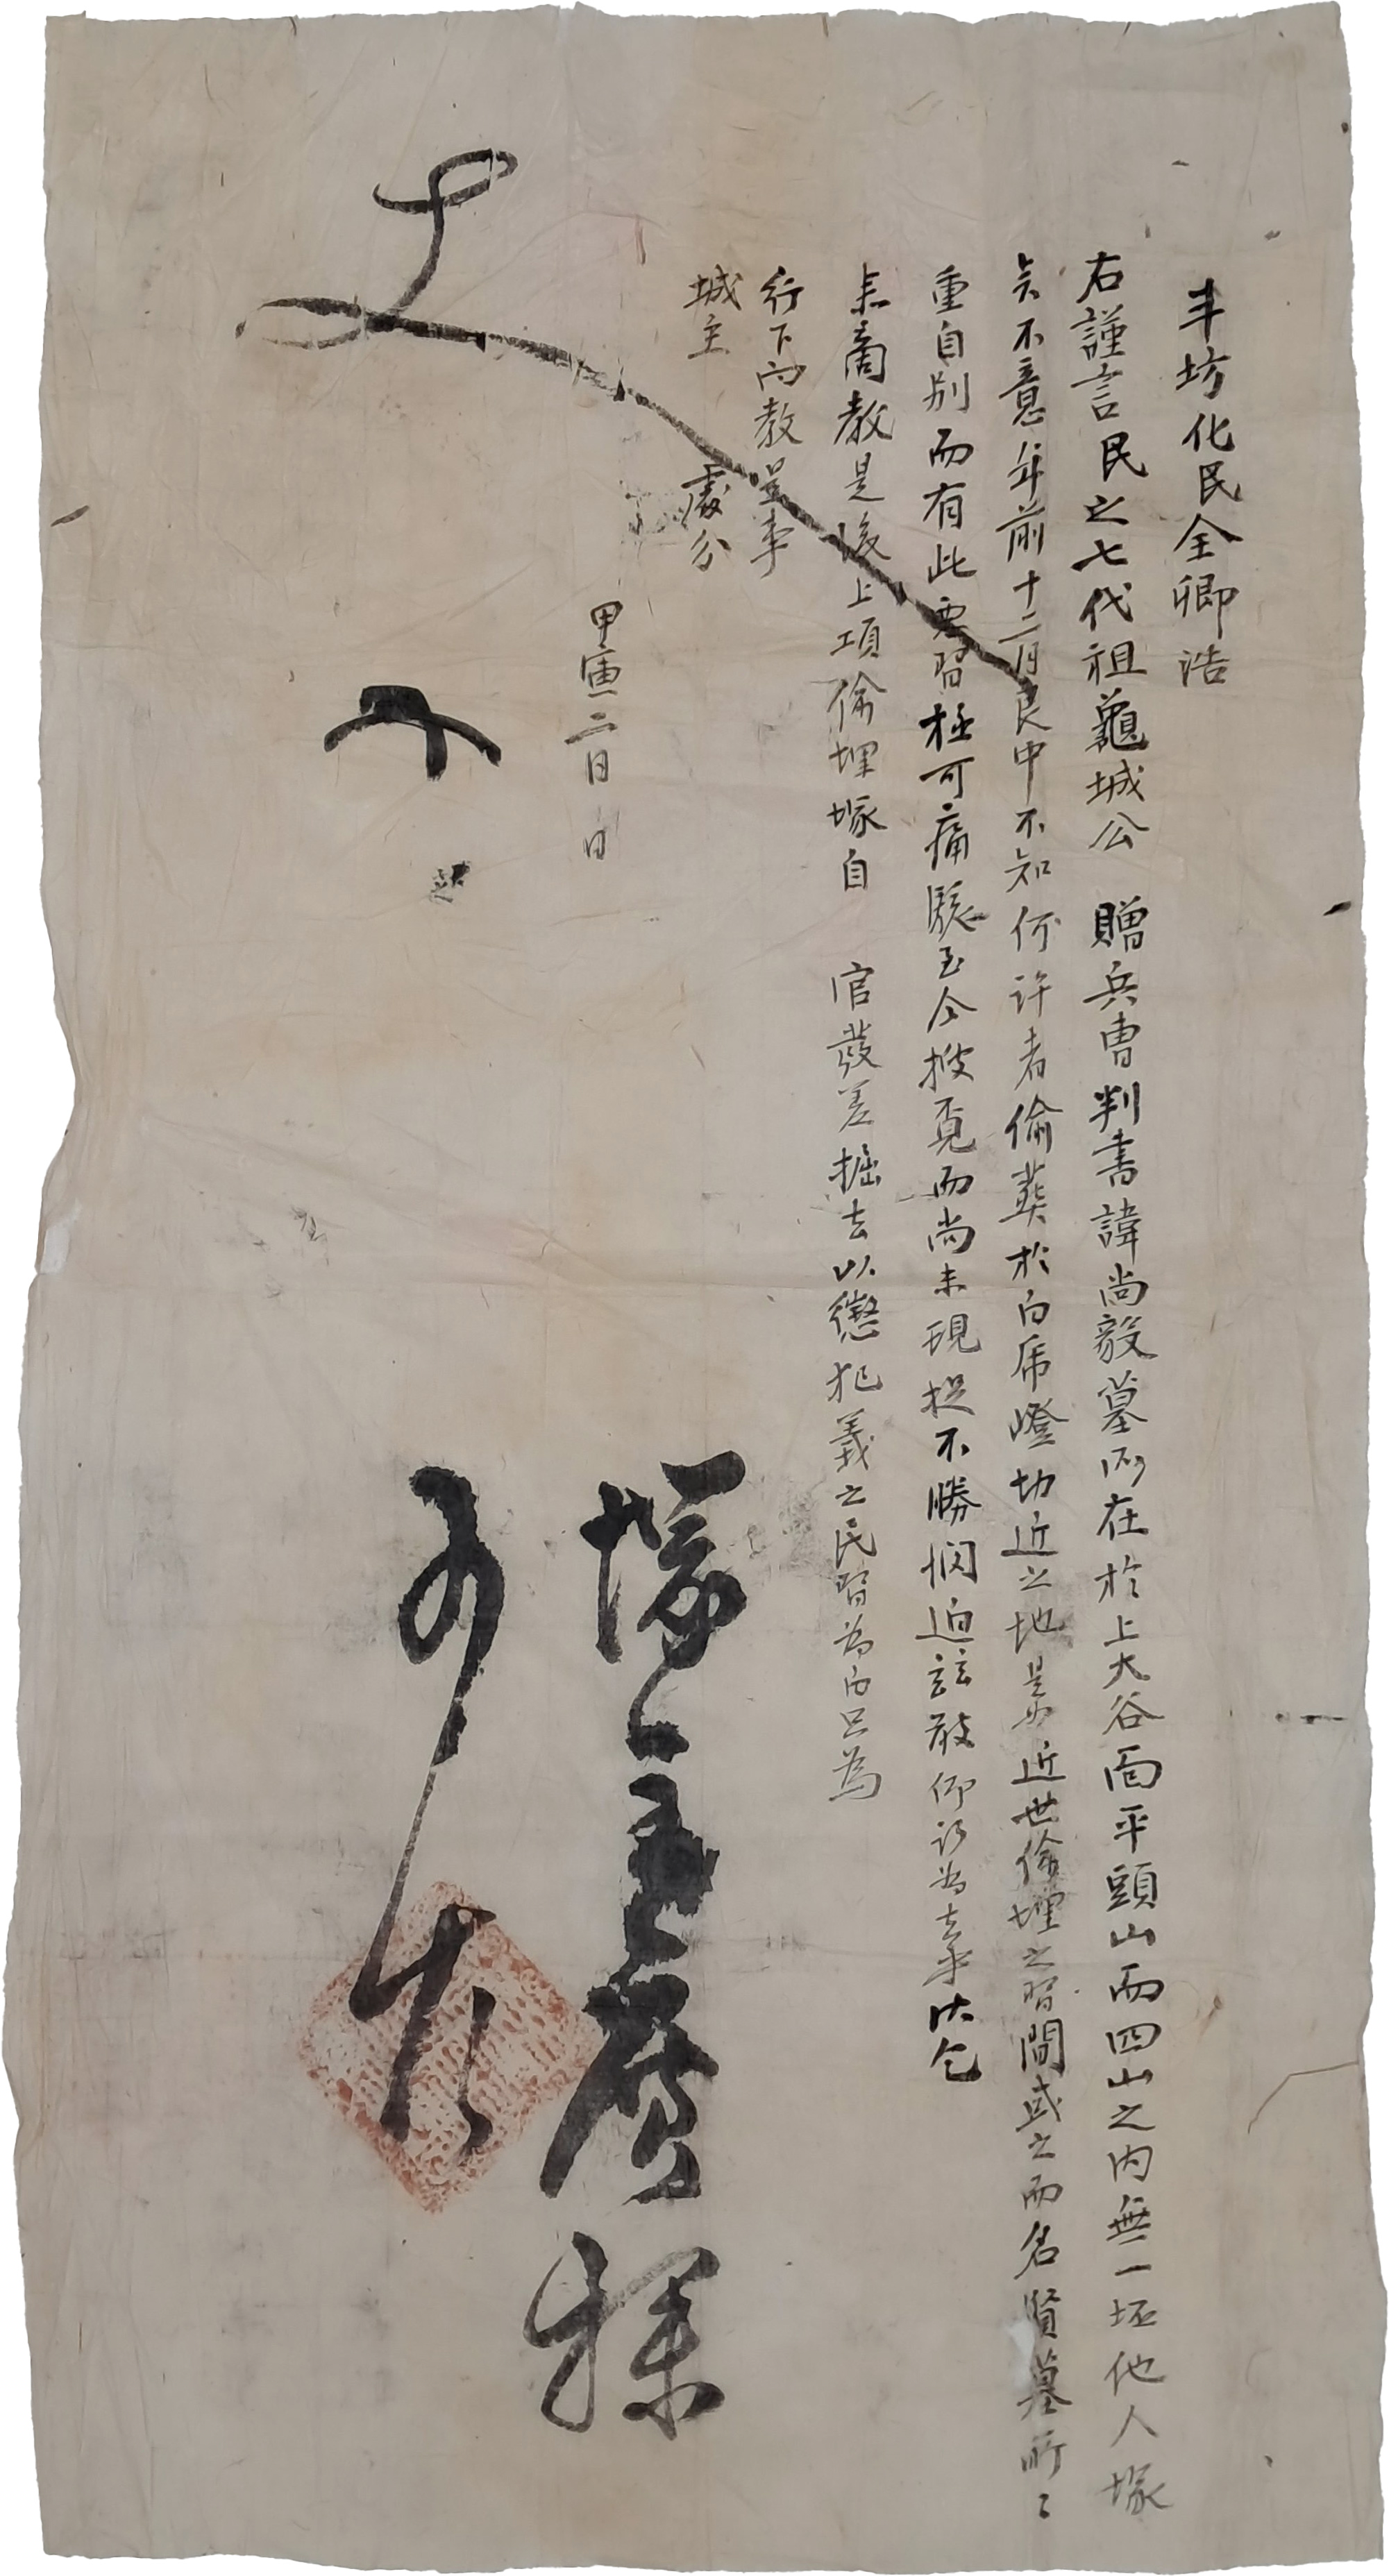 丰坊化民全卿浩
右謹言民之七代祖龜城公 贈兵曹判書諱尚毅墓所在於上大谷面平頭山而四山之內無一坯他人塚
矣不意年前十二月良中不知何許者偷葬於白虎嶝切近之地是如近世偷埋之習間或之而名賢墓所〻
重自別而有此惡習極可痛駭至今搜覓而尚未現捉不勝悶迫玆敢仰訴為去乎伏乞
参商教是後上項偷埋塚自 官發差掘去以懲犯義之民習為白只為
行下向教是事
城主 處分
甲寅二月 日
塚主廣探